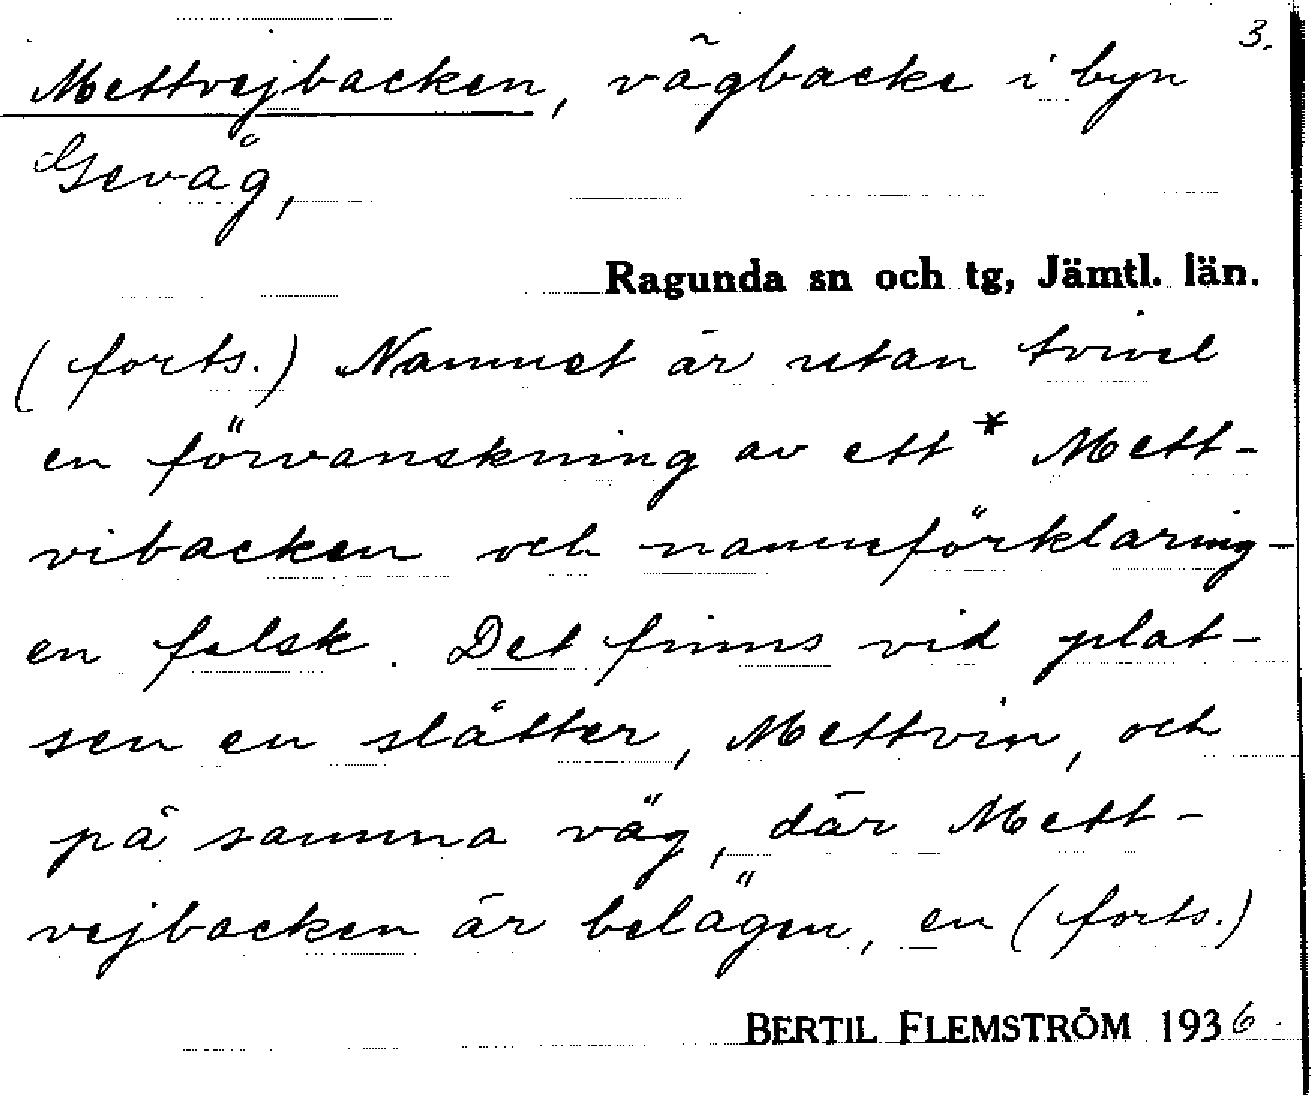 3.
Mettvejbacken, vägbacke i byn
Gevåg,
Ragunda sn och tg, Jämtl. län.
(forts.) Namnet är utan tvivel
en förvanskning av ett * Mett-
vibacken och namnförklaring-
en falsk. Det finns vid plat-
sen en slåtter, Mettvin, och
på samma väg, där Mett-
vejbacken är belägen, en (forts.)
BERTIL FLEMSTRÖM 1936.